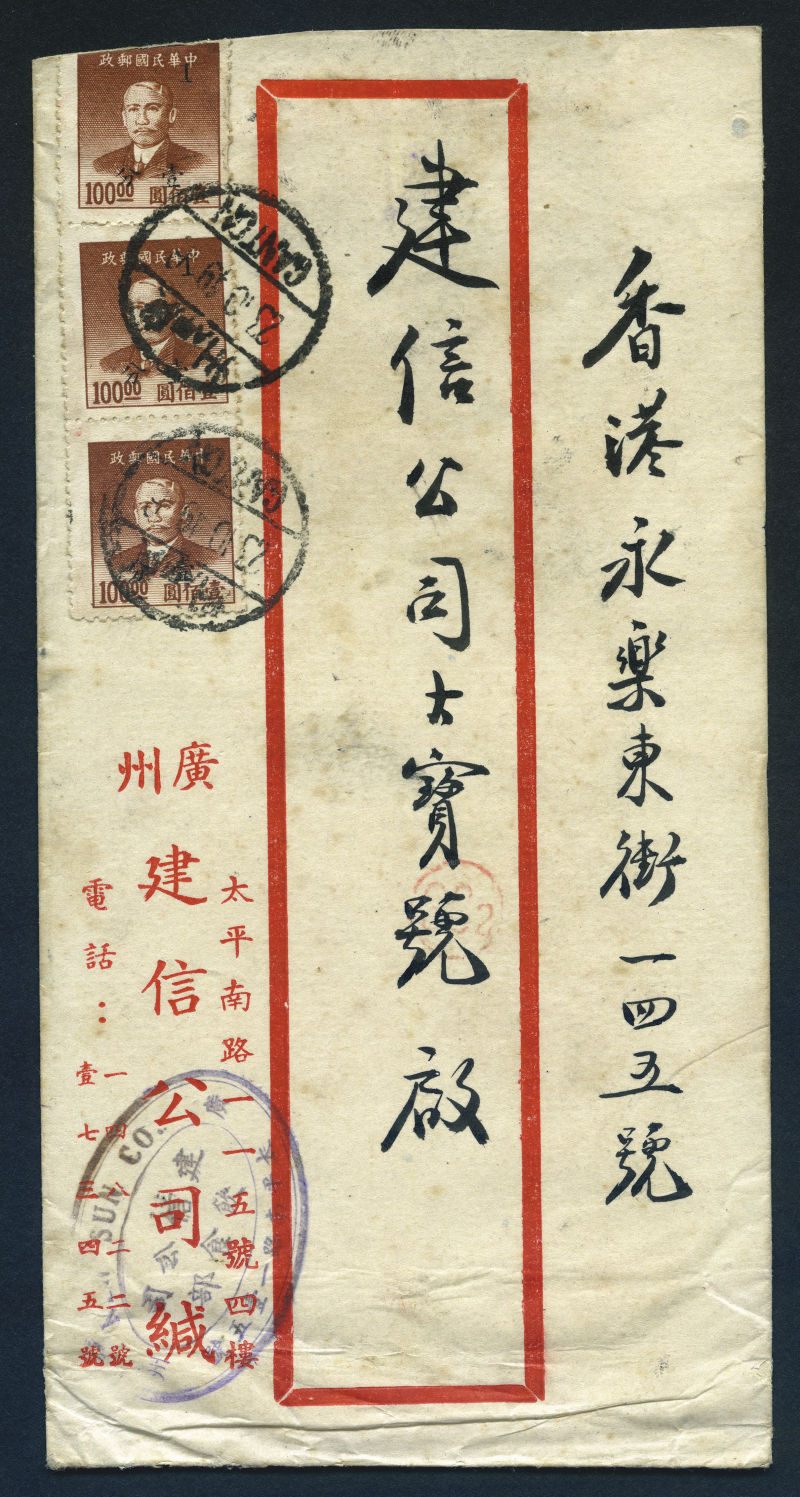 香港永樂東街一四五號
建信公司大寶號啟
中華民國郵政
1
壹分
100.00
壹佰圓
CANTON
中華民國郵政
分
100.00
壹佰圓
中華民國郵政
100.00
壹佰圓
廣州
太平南路一一五號四樓
建信公司緘
電話：
一四八二二號
壹七三四五號
SUN CO.
建信公司
飲食部